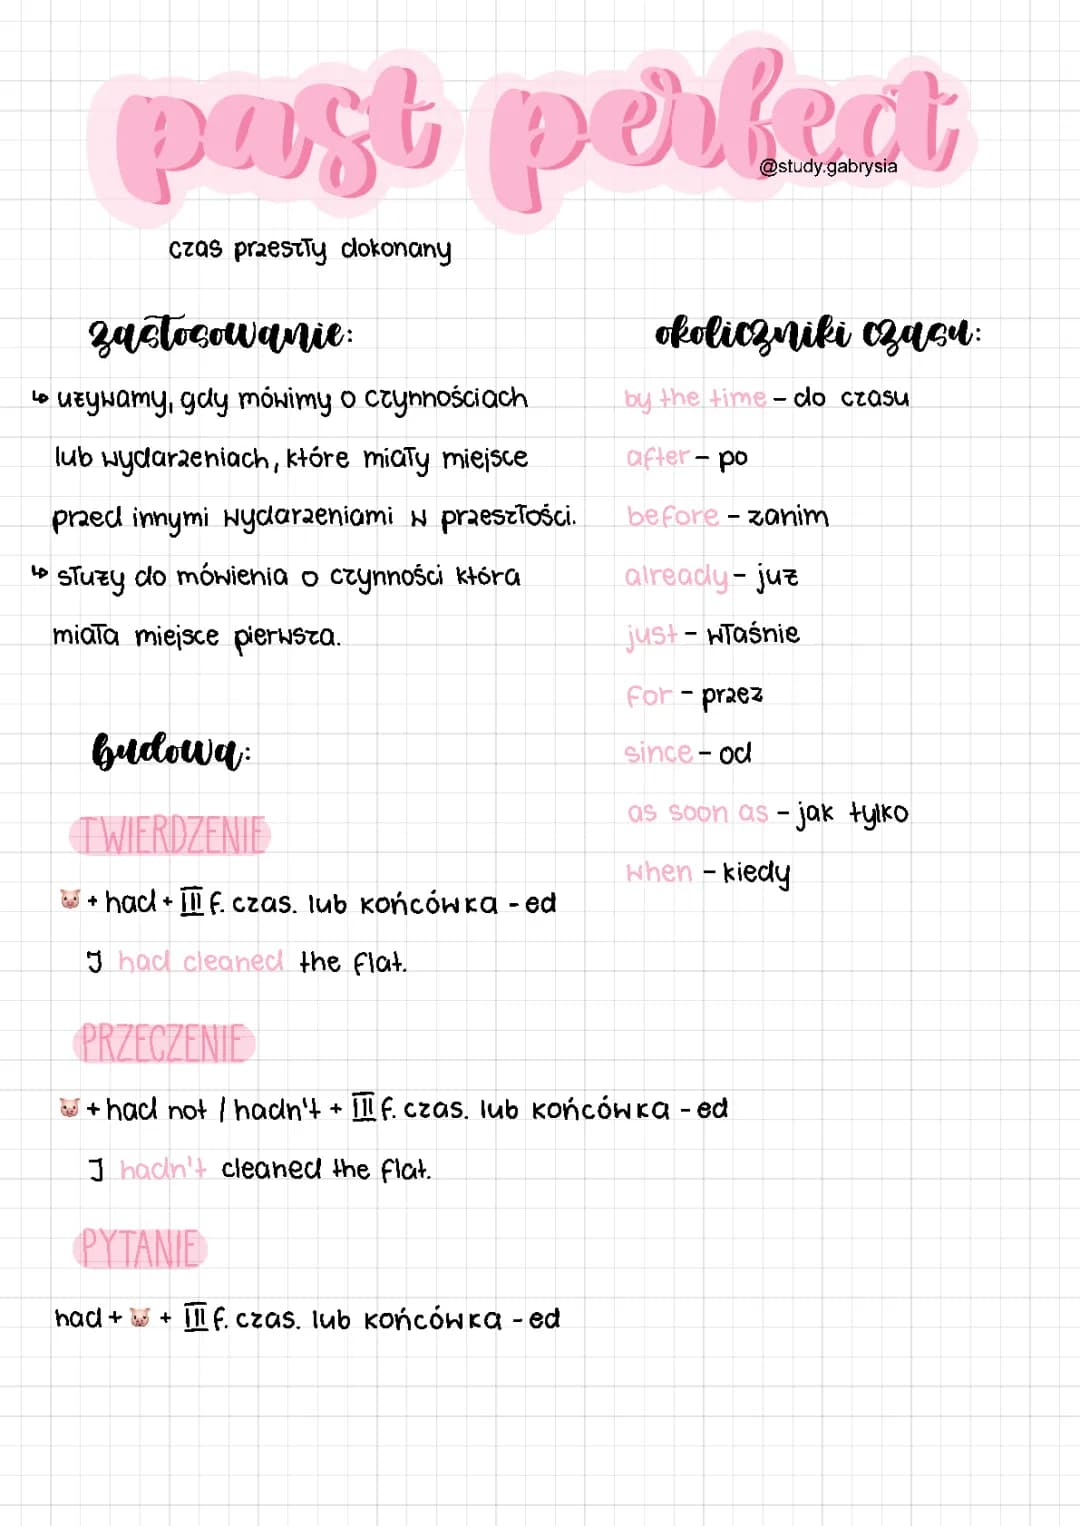 past perfect
@study.gabrysia
czas przeszły dokonany
zastosowanie:
↳ używamy, gdy mówimy o czynnościach
lub wydarzeniach, które miały miejsce
przed innymi wydarzeniami w przeszłości.
↳ służy do mówienia o czynności która
miała miejsce pierwsza.
budowa:
TWIERDZENIE
🐷 + had + III f. czas. lub końcówka - ed
I had cleaned the flat.
PRZECZENIE
🐷 + had not / hadn't + III f. czas. lub końcówka - ed
I hadn't cleaned the flat.
PYTANIE
had + 🐷 + III f. czas. lub końcówka - ed
okoliczniki czasu:
by the time - do czasu
after - po
before - zanim
already - już
just - właśnie
for - przez
since - od
as soon as - jak tylko
when - kiedy